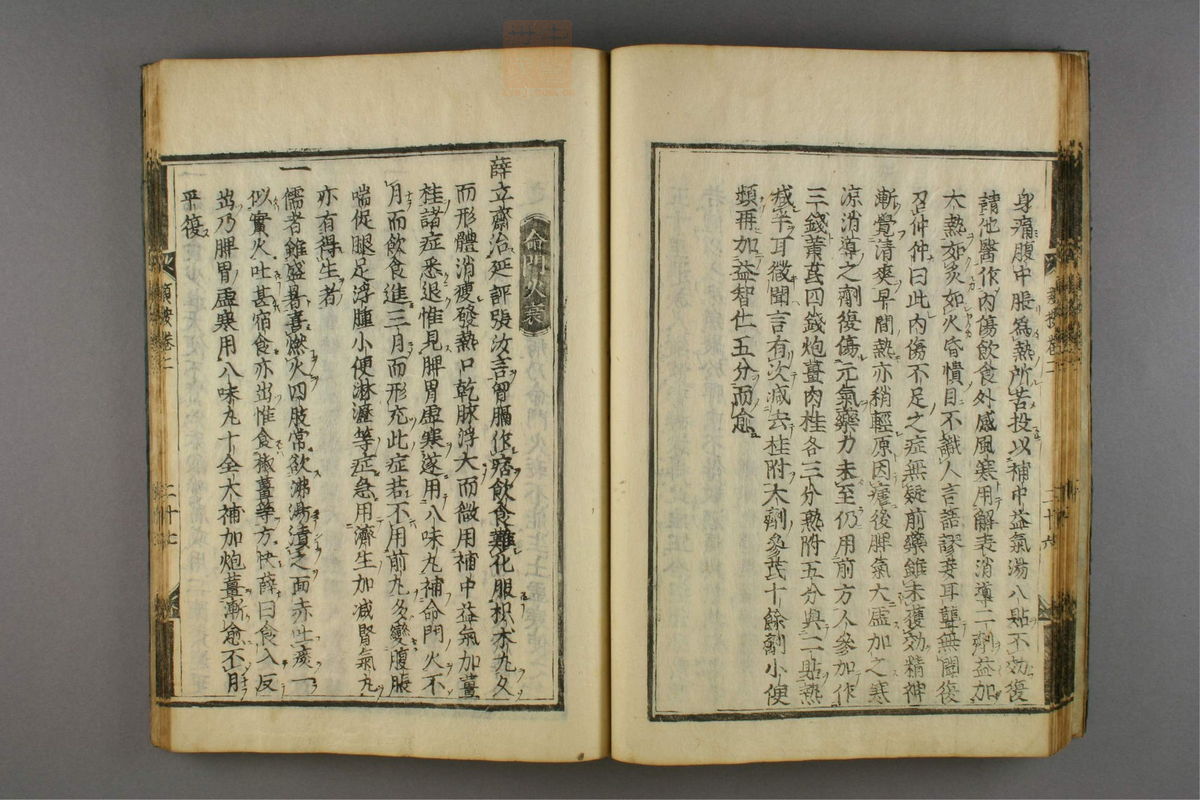 身痛腹中脹爲熱所苦投以補中益氣湯八貼不効復
請他醫作內傷飲食外感風寒用解表消導二劑益加
大熱如炙如火昏憒目不識人言語謬妄耳聾無聞復
召仲仲曰此內傷不足之症無疑前藥雖未獲効精神
漸覺清爽早間熱亦稍輕原因瘧後脾氣大虛加之寒
涼消導之劑復傷元氣藥力未至仍用前方人參加作
三錢黃芪四錢炮薑肉桂各三分熟附五分與二貼熱
減半耳微聞言有次減去桂附大劑參芪十餘劑小便
頻再加益智仁五分而愈
二十六
命門火衰
薛立齋治廷評張汝言胷膈作痞飲食難化服枳朮丸久
而形體消瘦發熱口乾脉浮大而微用補中益氣加薑
桂諸症悉退惟見脾胃虛寒遂用八味丸補命門火不
月而飲食進三月而形充此症若不用前丸多變腹脹
喘促腿足浮腫小便淋瀝等症急用濟生加減腎氣丸
亦有得生者
一儒者雖盛暑喜燃火四肢常欲沸湯漬之面赤吐痰一
似實火吐甚宿食亦出惟食椒薑等方快薛曰食入反
出乃脾胃虛寒用八味丸十全大補加炮薑漸愈不月
平復
類按卷二
二十七